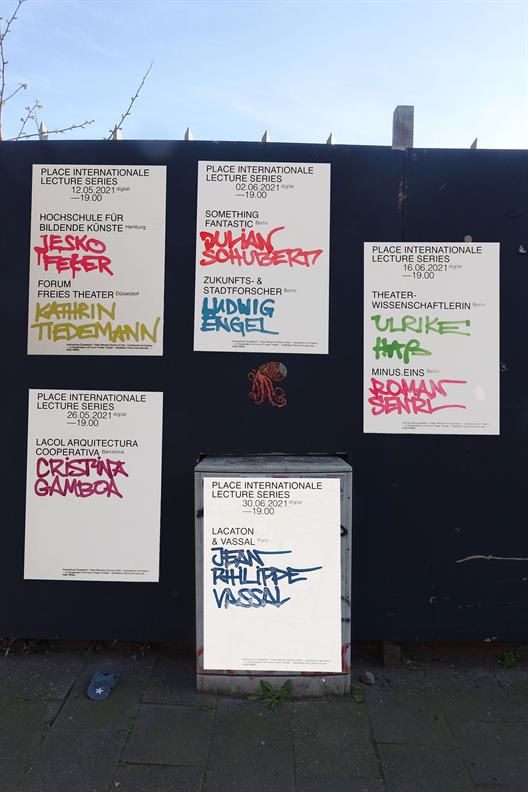 PLACE INTERNATIONALE
LECTURE SERIES
12.05.2021 digital
—19.00
HOCHSCHULE FÜR
BILDENDE KÜNSTE Hamburg
JESKO
FEZER
FORUM
FREIES THEATER Düsseldorf
KATHRIN
TIEDEMANN
PLACE INTERNATIONALE
LECTURE SERIES
02.06.2021 digital
—19.00
SOMETHING
FANTASTIC Berlin
JULIAN
SCHUBERT
ZUKUNFTS- &
STADTFORSCHER Berlin
LUDWIG
ENGEL
PLACE INTERNATIONALE
LECTURE SERIES
16.06.2021 digital
—19.00
THEATER-
WISSENSCHAFTLERIN Berlin
ULRIKE
HAß
MINUS.EINS Berlin
ROMAN
SENKL
PLACE INTERNATIONALE
LECTURE SERIES
26.05.2021 digital
—19.00
LACOL ARQUITECTURA
COOPERATIVA Barcelona
CRISTINA
GAMBOA
PLACE INTERNATIONALE
LECTURE SERIES
30.06.2021 digital
—19.00
LACATON
& VASSAL Paris
JEAN
PHILIPPE
VASSAL